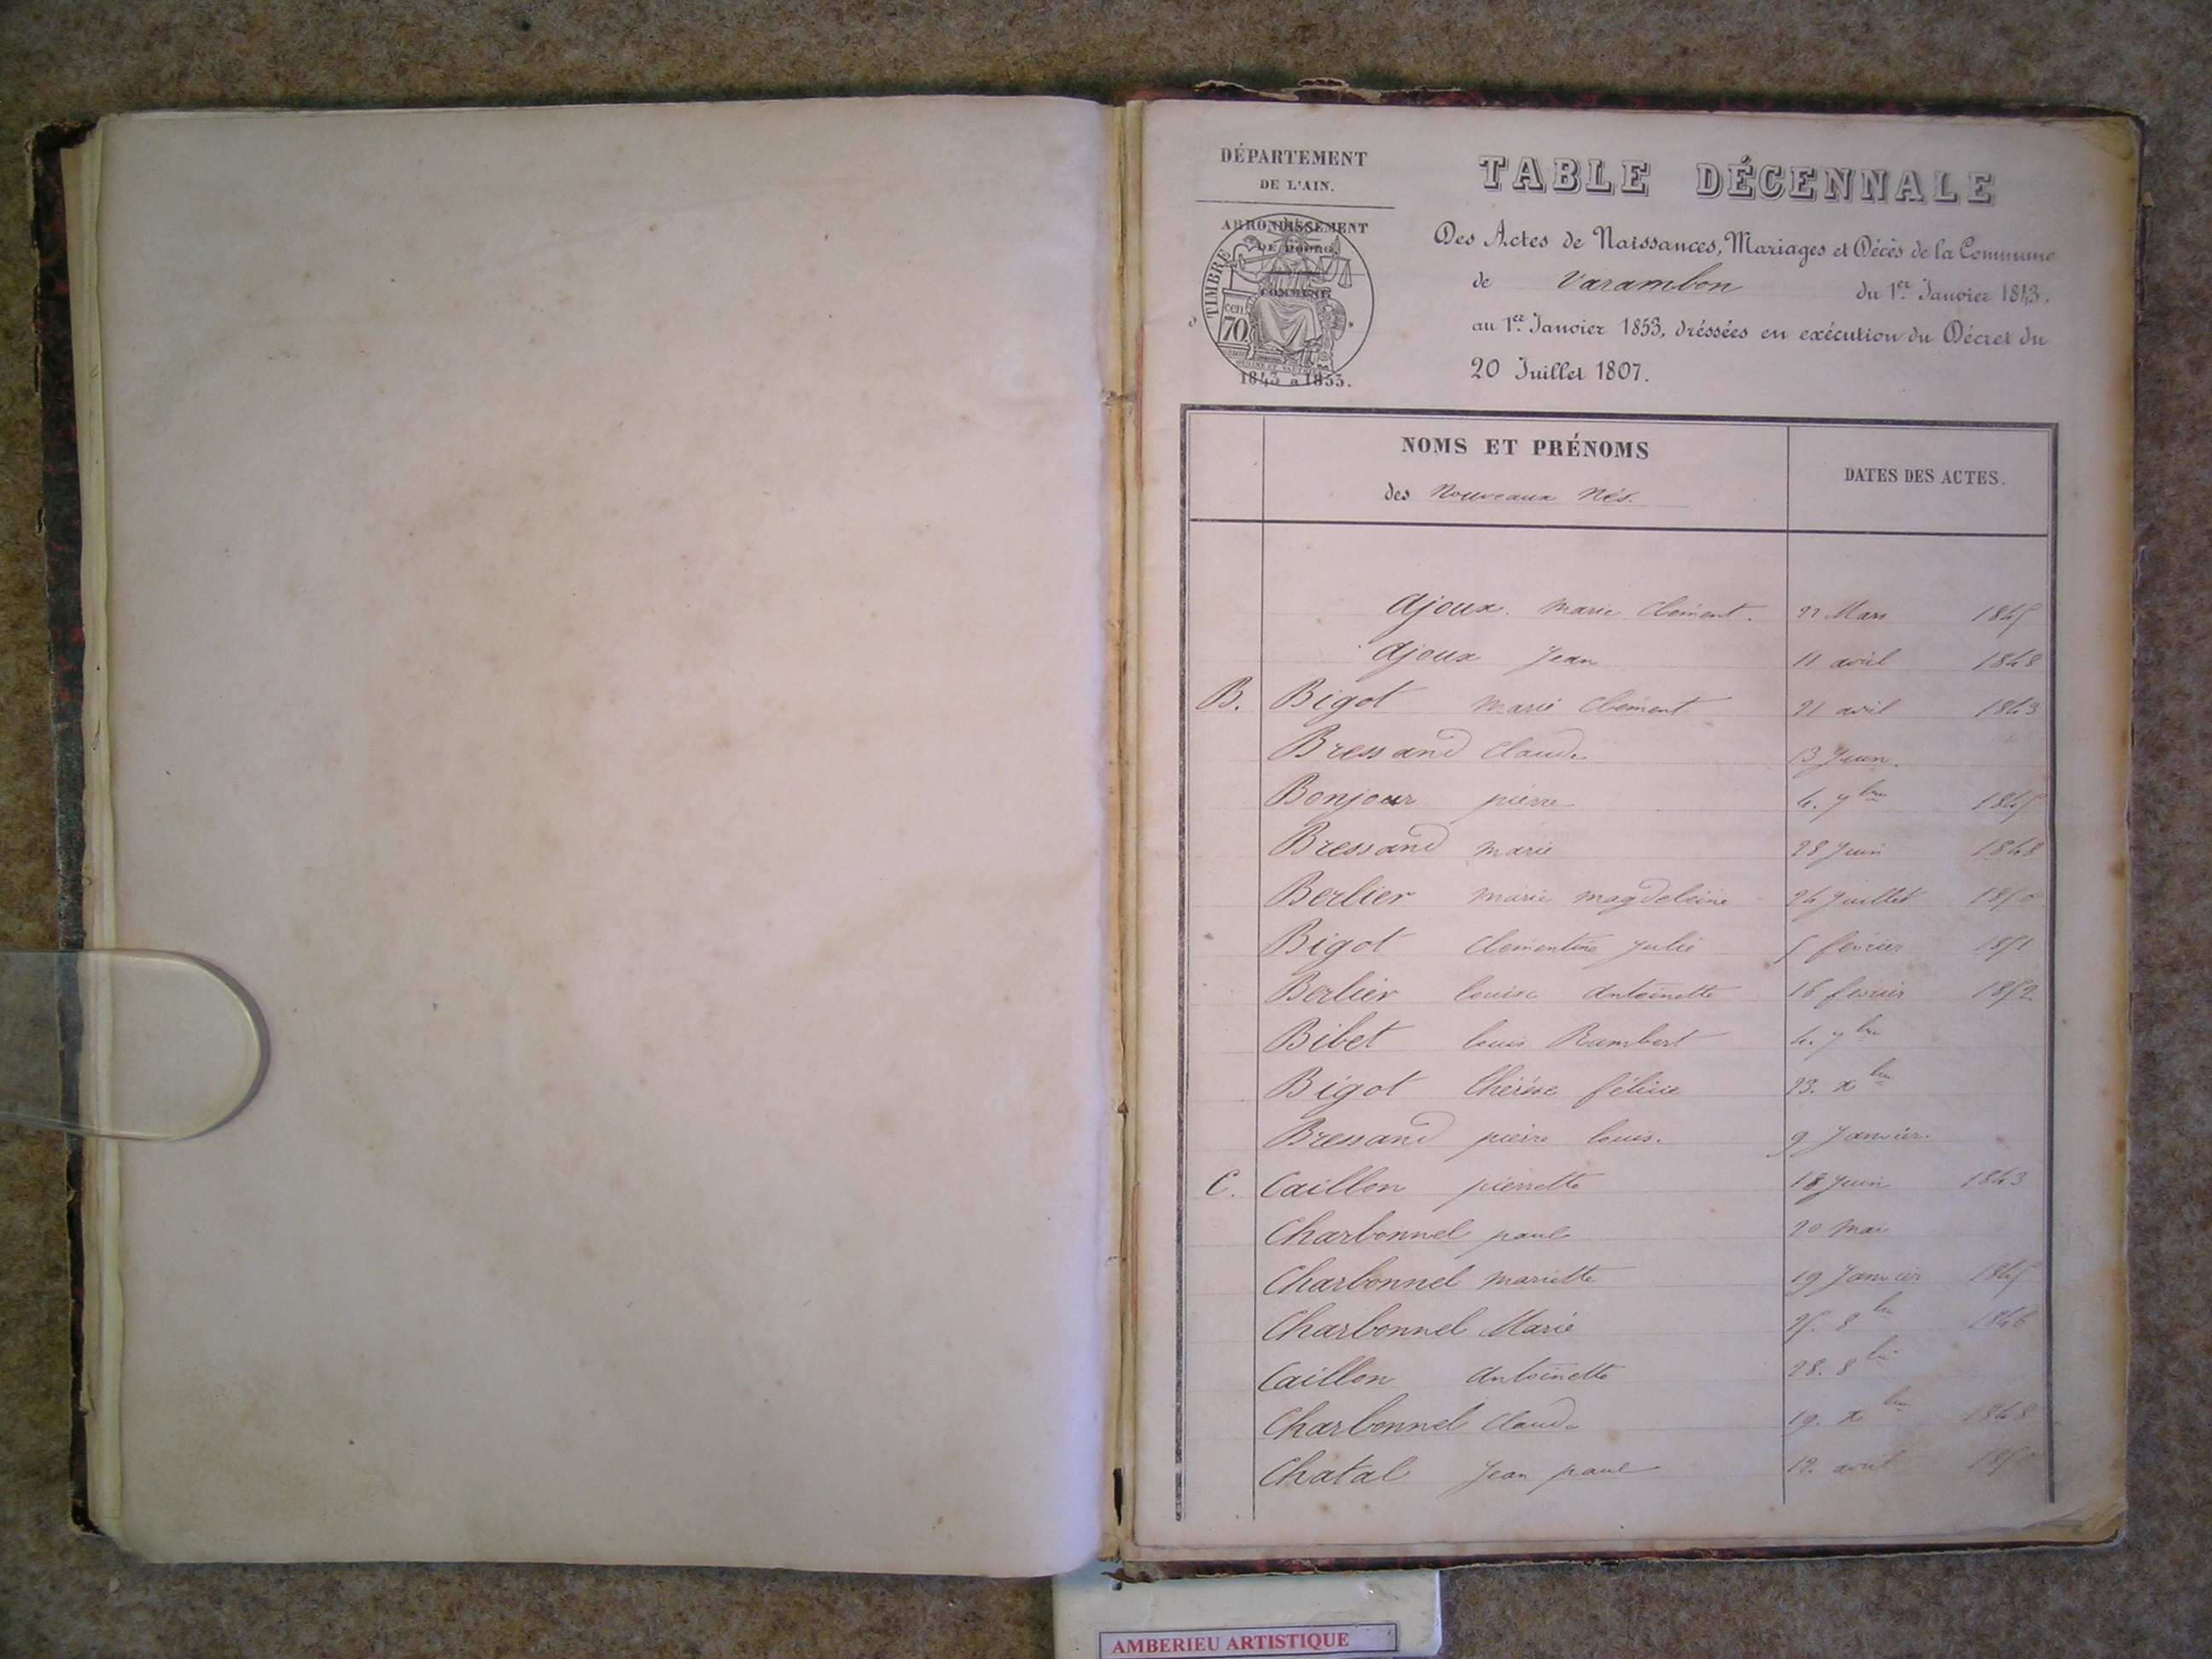 DÉPARTEMENT
DE L'AIN.
ARRONDISSEMENT
DE BOURG.
COMMUNE
TIMBRE
CEN.
70
1843 à 1853.
TABLE DÉCENNALE
Des Actes de Naissances, Mariages et Décès de la Commune
de Varambon du 1er Janvier 1843.
au 1er Janvier 1853, dréssées en exécution du Décret du
20 Juillet 1807.
NOMS ET PRÉNOMS
des Nouveaux Nés.
DATES DES ACTES.
Ajoux. Marie Clément. 22 Mars 1845
Ajoux Jean 11 avril 1848
B. Bigot Marie Clément 21 avril 1843
Bressand Claude 13 Juin.
Bonjour pierre 4. 7bre 1845
Bressand Marie 28 Juin 1848
Berlier Marie Magdeleine 24 Juillet 1850
Bigot Clementine Julie 5 février 1851
Berlier Louise Antoinette 16 février 1852
Bibet Louis Rambert 4. 7bre
Bigot Thérèse félicie 23. xbre
Bressand pierre Louis. 9 Janvier.
C. Caillon pierrette 18 Juin 1843
Charbonnel paul 20 Mai
Charbonnel Mariette 19 Janvier 1845
Charbonnel Marie 25. 8bre 1846
Caillon Antoinette 28. 8bre
Charbonnel Claude 19. xbre 1848
Chatal Jean paul 12. avril 1850
AMBERIEU ARTISTIQUE